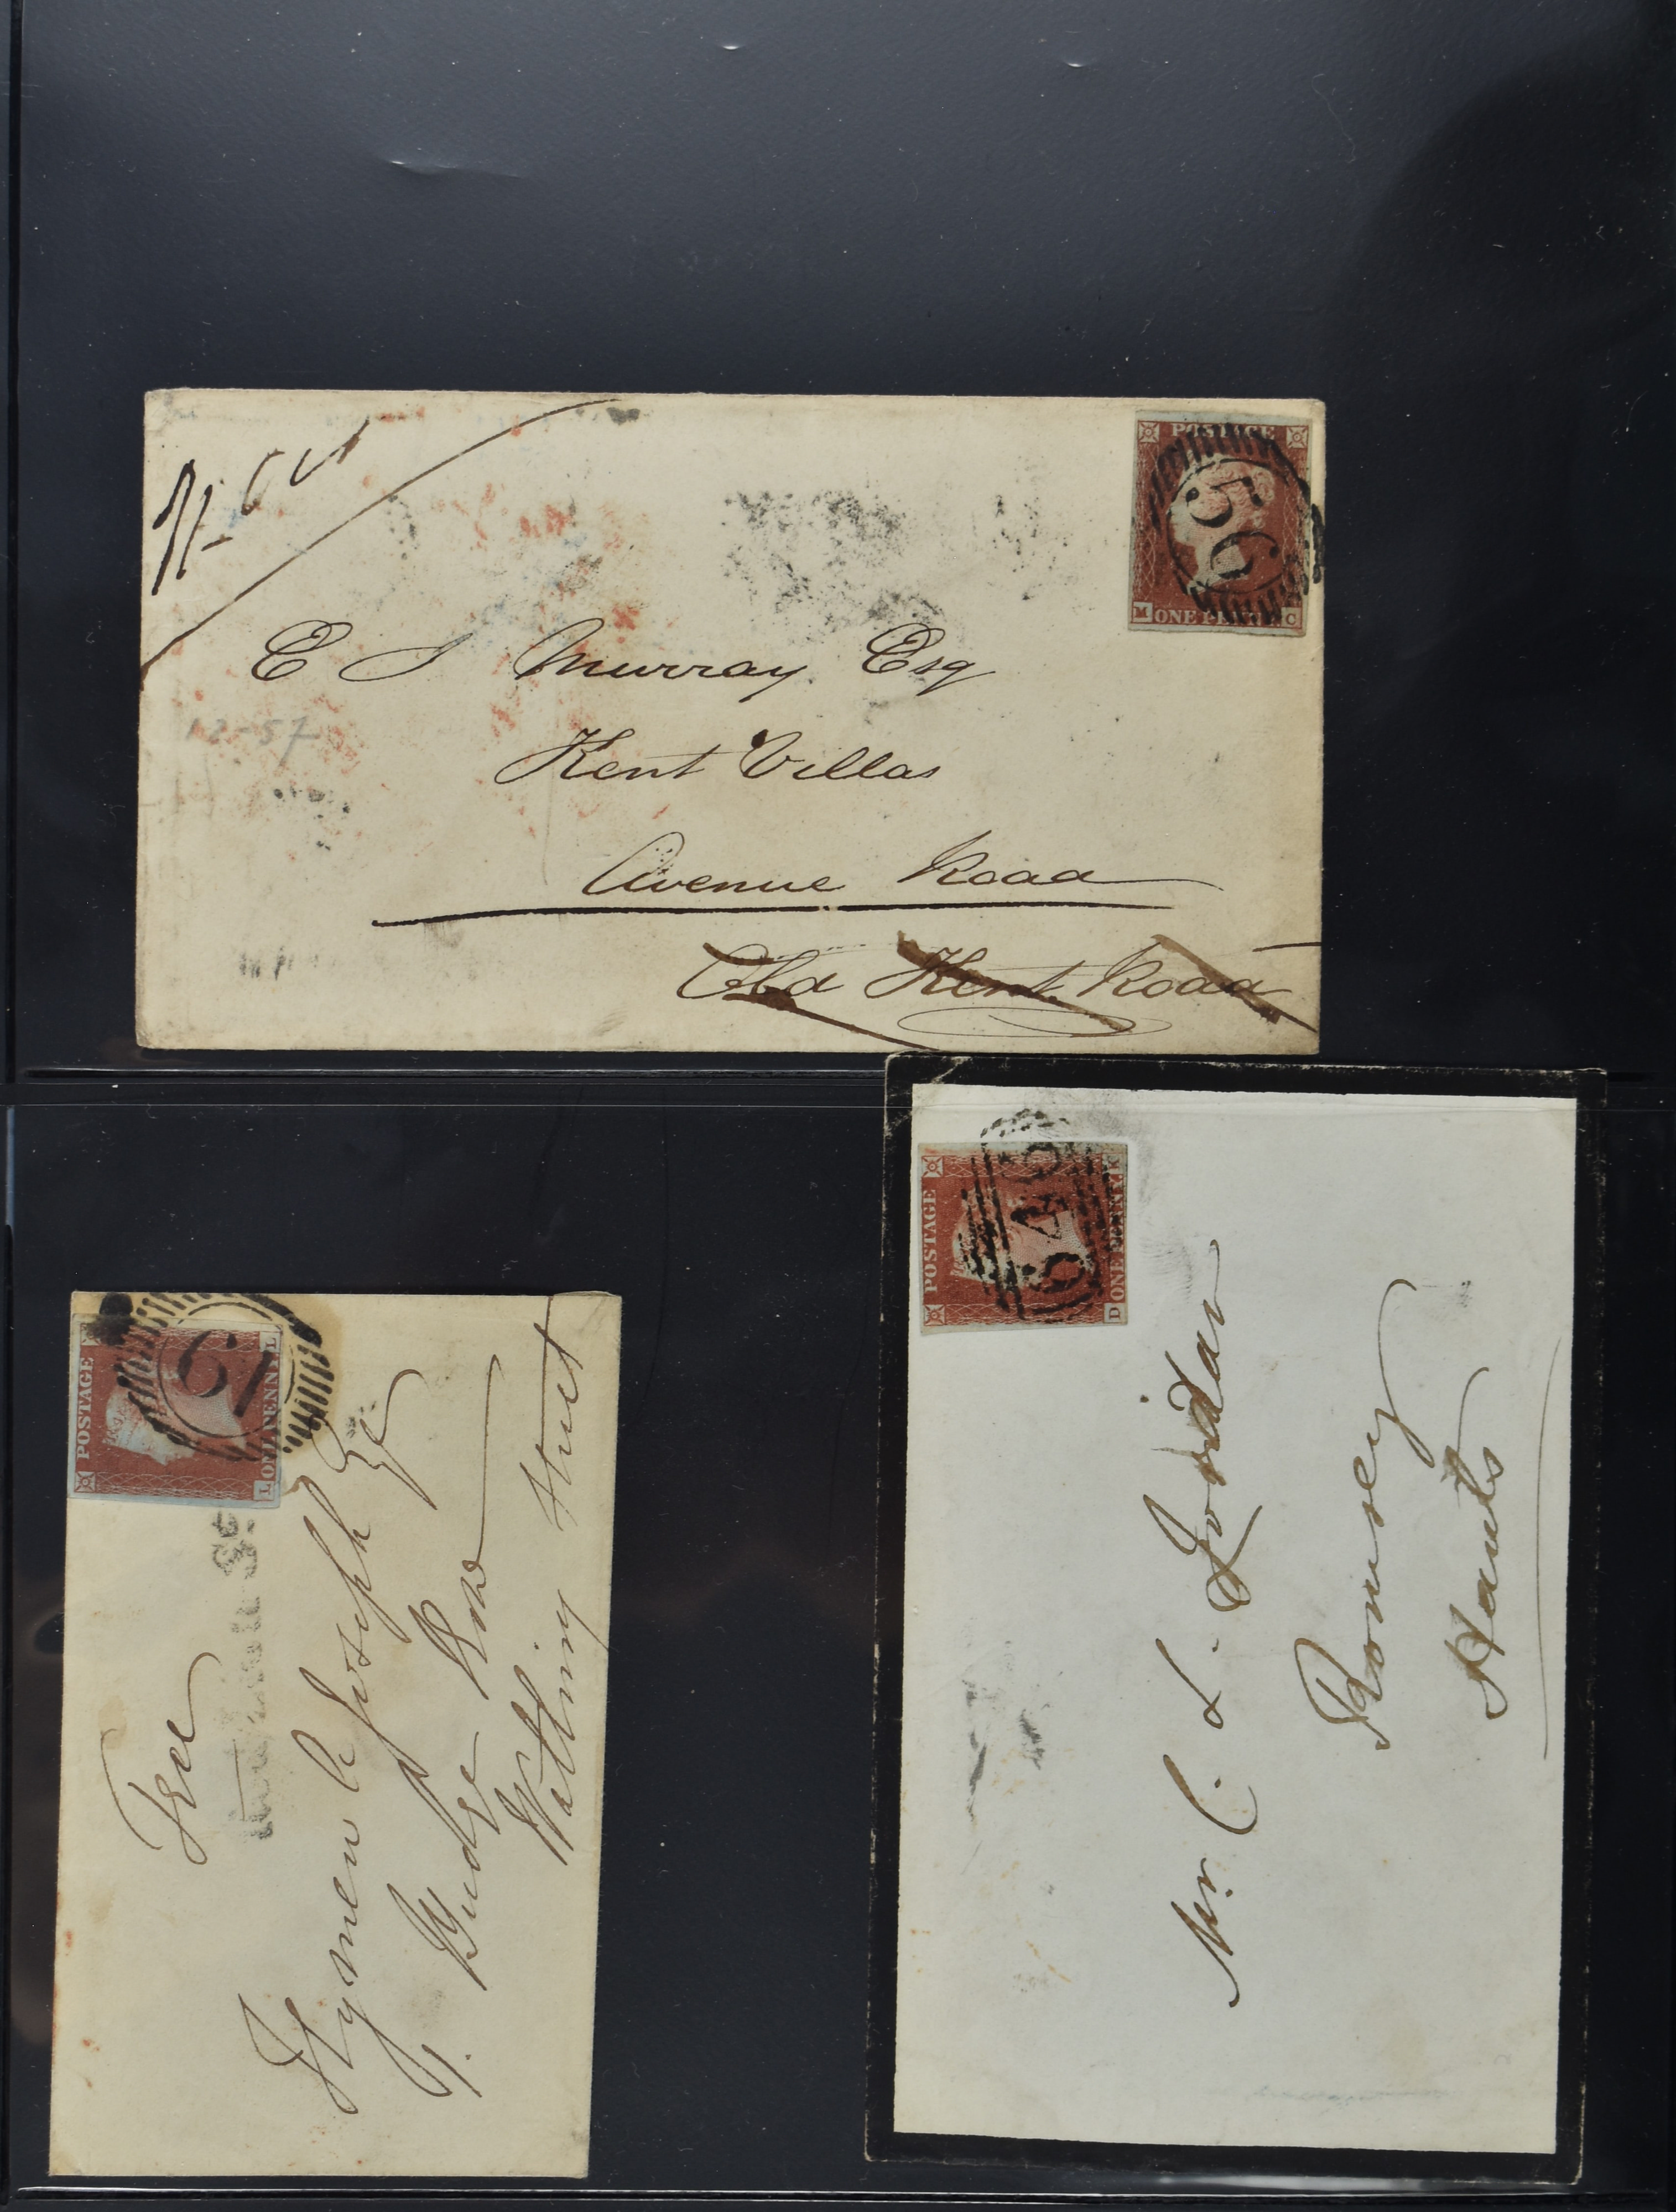 POSTAGE
50
M ONE PENNY C
E J Murray Esq
Kent Villas
Avenue Road
Old Kent Road
12-57
POSTAGE
61
L ONE PENNY L
Free
Hymen L Joseph Esq
7. Budge Row
Watling Street
POSTAGE
646
D ONE PENNY K
Mr. C. L. Jordan
Romsey
Hants